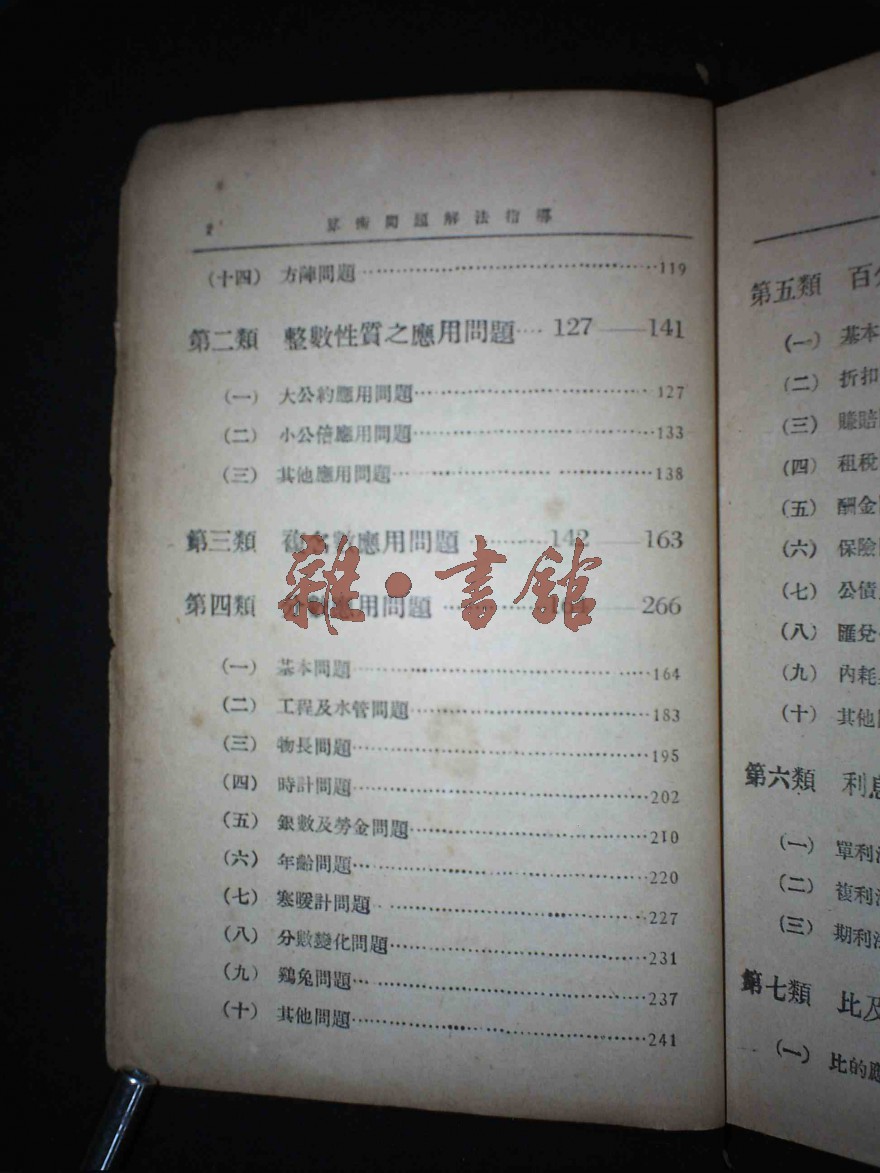 2 算術問題解法指導
(十四) 方陣問題……119
第二類 整數性質之應用問題…127——141
(一) 大公約應用問題……127
(二) 小公倍應用問題……133
(三) 其他應用問題……138
第三類 複名數應用問題……142——163
第四類 分數應用問題……164——266
(一) 基本問題……164
(二) 工程及水管問題……183
(三) 物長問題……195
(四) 時計問題……202
(五) 銀數及勞金問題……210
(六) 年齡問題……220
(七) 寒暖計問題……227
(八) 分數變化問題……231
(九) 鷄兔問題……237
(十) 其他問題……241
雜·書館
第五類 百
(一) 基本
(二) 折扣
(三) 賺賠
(四) 租稅
(五) 酬金
(六) 保險
(七) 公債
(八) 匯兌
(九) 內耗
(十) 其他
第六類 利息
(一) 單利
(二) 複利
(三) 期利
第七類 比及
(一) 比的應